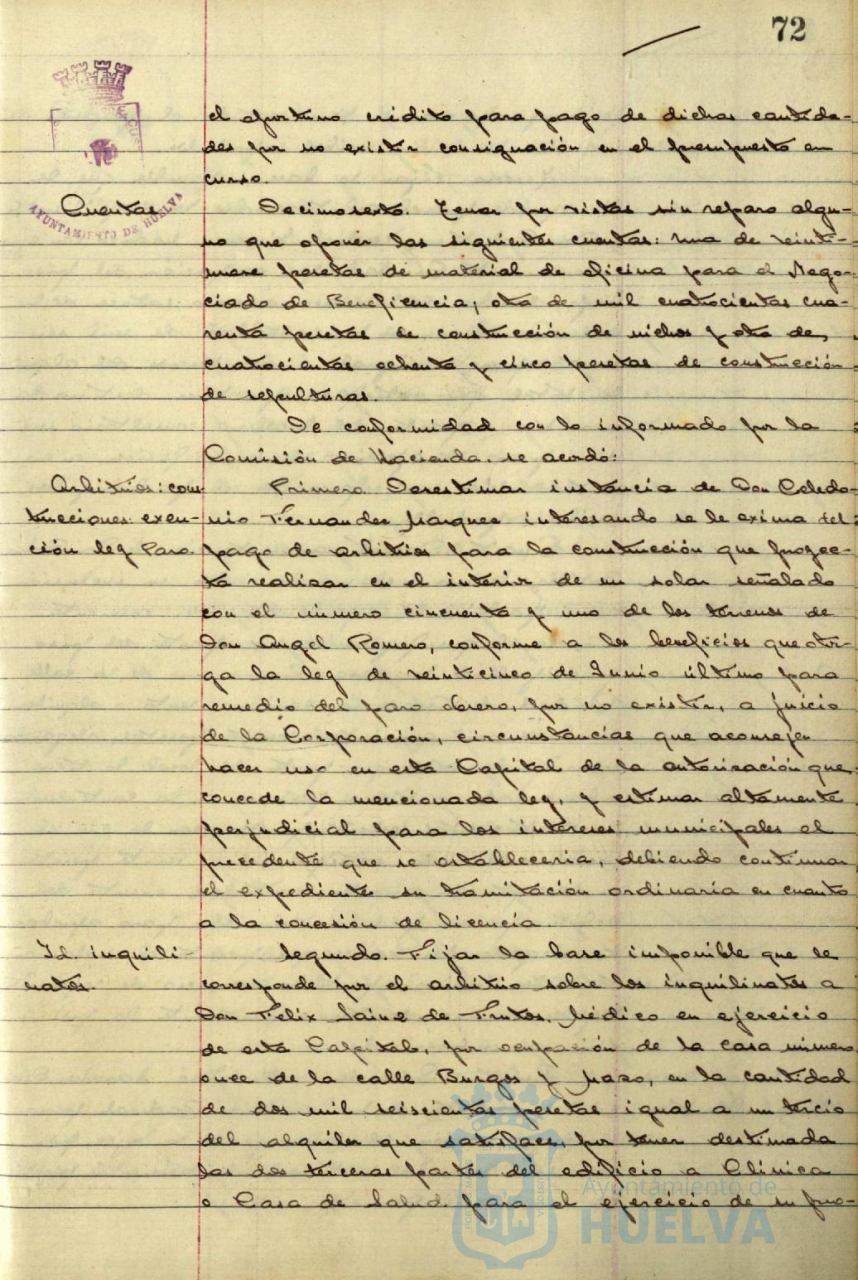 72
el oportuno crédito para pago de dichas cantida-
des por no existir consignación en el presupuesto en
curso.
Cuentas
AYUNTAMIENTO DE HUELVA
Decimosexto. Tener por vistas sin reparo algu-
no que oponer las siguientes cuentas: una de veinti-
nueve pesetas de material de oficina para el Nego-
ciado de Beneficencia; otra de mil cuatrocientas cua-
renta pesetas de construcción de nichos y otra de,
cuatrocientas ochenta y cinco pesetas de construcción
de sepulturas.
De conformidad con lo informado por la
Comisión de Hacienda. se acordó:
Arbitrios: cons-
trucciones: exen-
ción ley Paro.
Primero. Desestimar instancia de Don Celedo-
nio Fernandez Marquez interesando se le exima del
pago de arbitrios para la construcción que proyec-
ta realizar en el interior de un solar señalado
con el número cincuenta y uno de los terrenos de
Don Angel Romero, conforme a los beneficios que otor-
ga la ley de veinticinco de Junio último para
remedio del paro obrero, por no existir, a juicio
de la Corporación, circunstancias que aconsejen
hacer uso en esta Capital de la autorización que
concede la mencionada ley, y estimar altamente
perjudicial para los intereses municipales el
precedente que se establecería, debiendo continuar
el expediente su tramitación ordinaria en cuanto
a la concesión de licencia.
Id. inquili-
natos.
Segundo. Fijar la base imponible que se
corresponde por el arbitrio sobre los inquilinatos a
Don Felix Sainz de Frutos, Médico en ejercicio
de esta Capital, por ocupación de la casa número
once de la calle Burgos y Mazo, en la cantidad
de dos mil seiscientas pesetas igual a un tercio
del alquiler que satisface, por tener destinada
las dos terceras partes del edificio a Clínica
o Casa de Salud para el ejercicio de su pro-
Ayuntamiento de
HUELVA